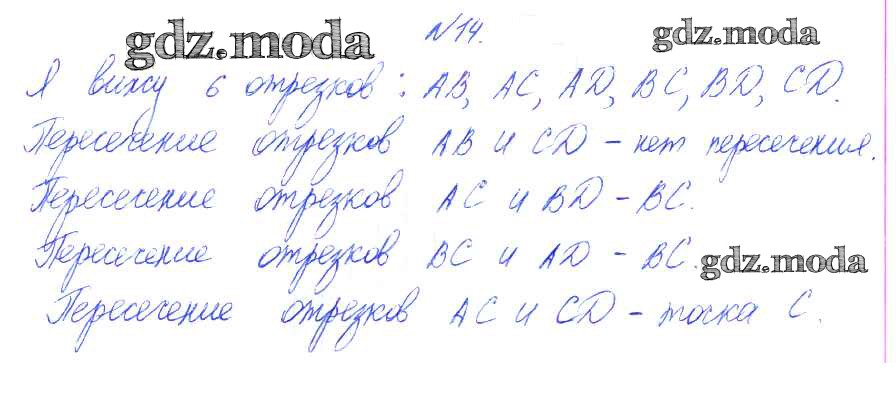 gdz.moda №14. gdz.moda
Я вижу 6 отрезков: AB, AC, AD, BC, BD, CD.
Пересечение отрезков AB и CD - нет пересечения.
Пересечение отрезков AC и BD - BC.
Пересечение отрезков BC и AD - BC. gdz.moda
Пересечение отрезков AC и CD - точка C.